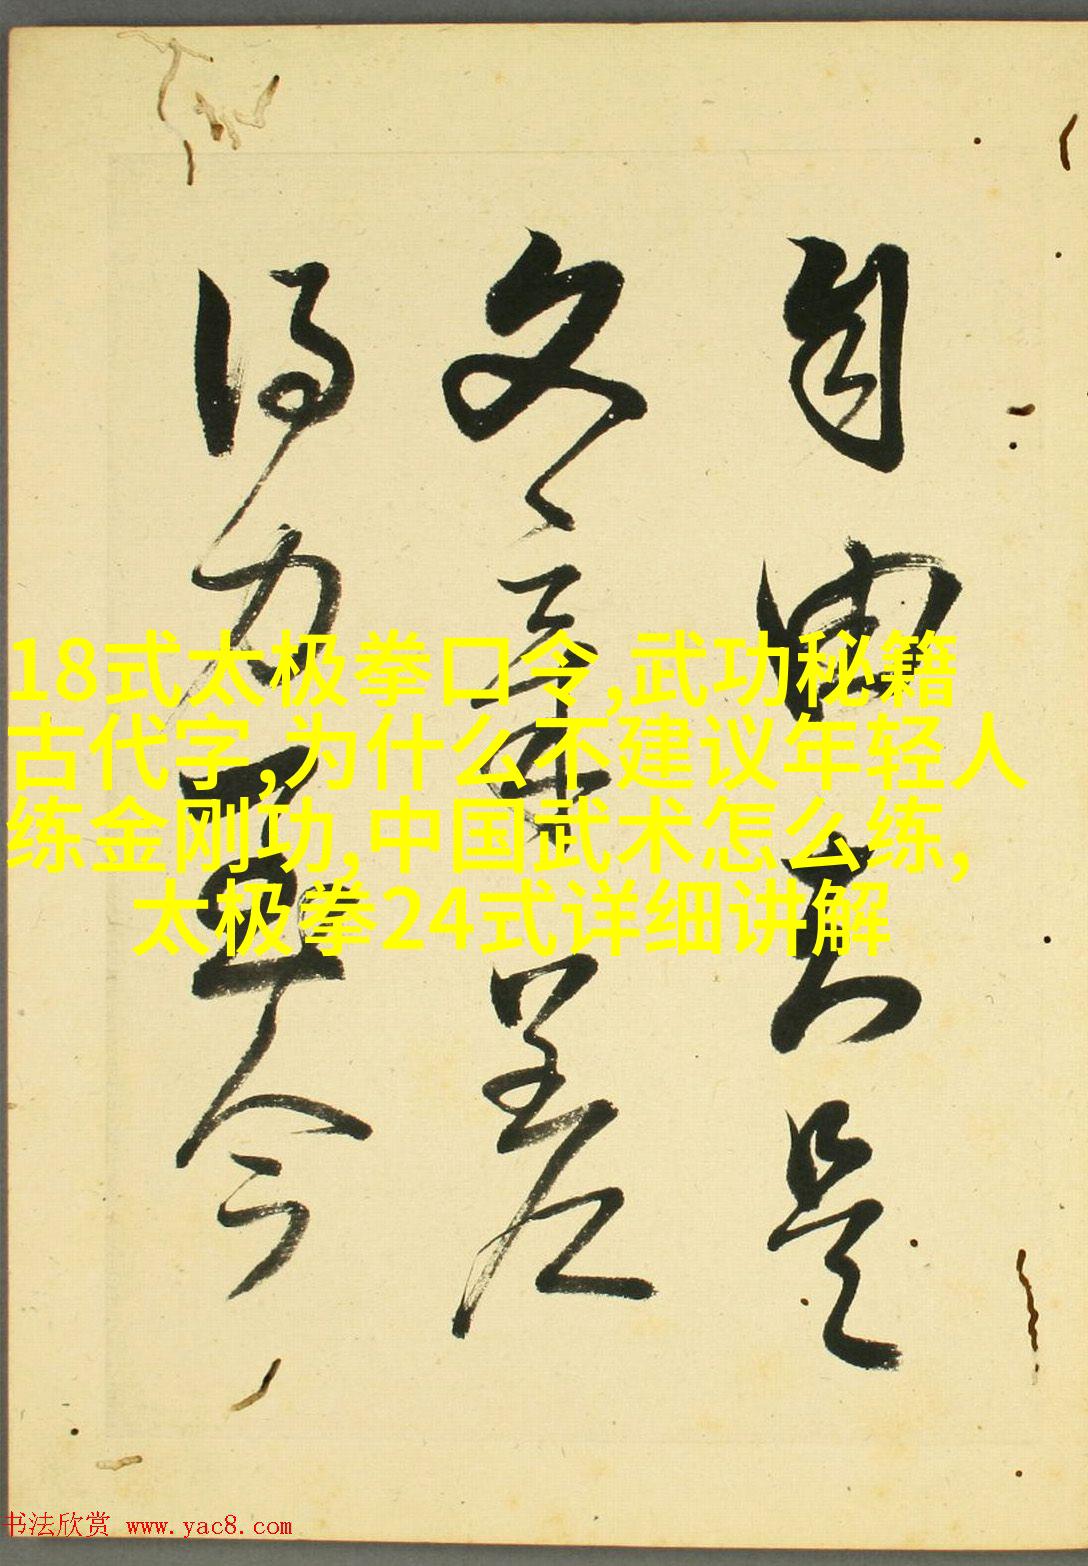 自由 是
文章
得力 今
18式太极拳口令,武功秘籍
古代字,为什么不建议年轻人
练金刚功,中国武术怎么练,
太极拳24式详细讲解
书法欣赏 www.yac8.com